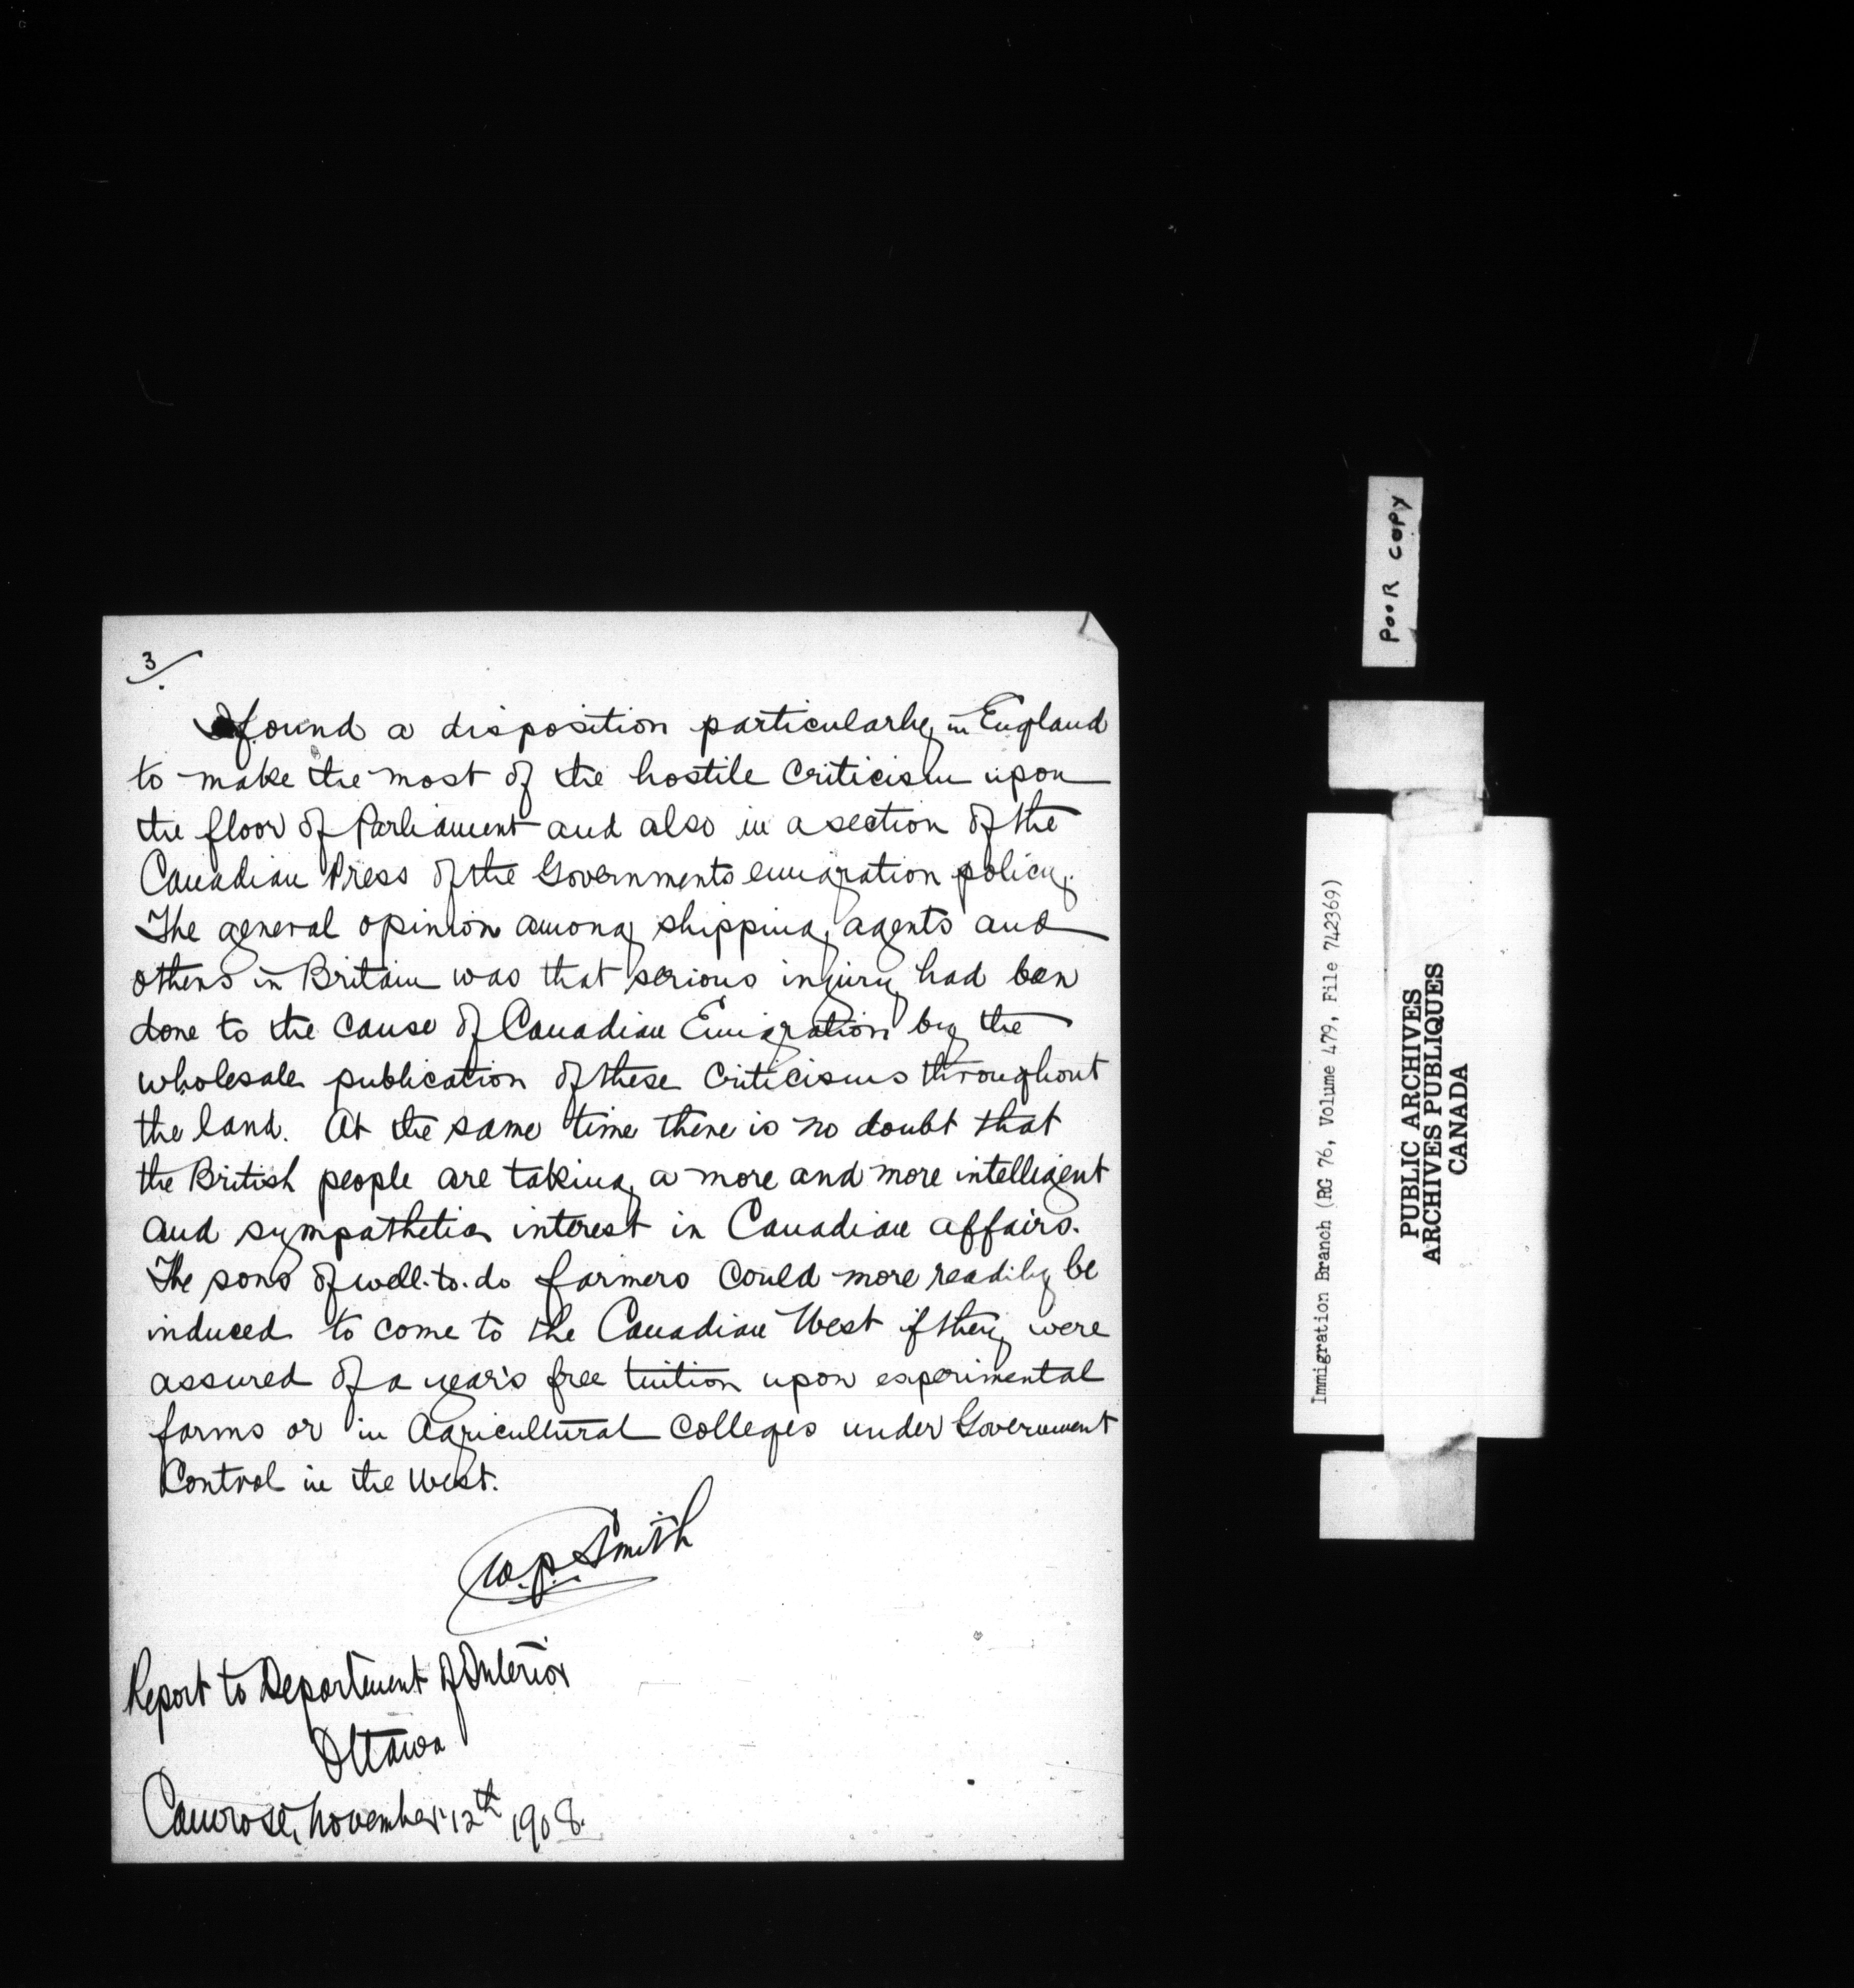 3/.
I found a disposition particularly in England
to make the most of the hostile criticism upon
the floor of Parliament and also in a section of the
Canadian Press of the Governments emigration policy.
The general opinion among shipping agents and
others in Britain was that serious injury had been
done to the cause of Canadian Emigration by the
wholesale publication of these criticisms throughout
the land. At the same time there is no doubt that
the British people are taking a more and more intelligent
and sympathetic interest in Canadian affairs.
The sons of well-to-do farmers could more readily be
induced to come to the Canadian West if they were
assured of a year's free tuition upon experimental
farms or in Agricultural Colleges under Government
Control in the West.
W.P. Smith
Report to Department of Interior
Ottawa
Camrose, November 12th 1908.
POOR COPY
Immigration Branch (RG 76, Volume 479, File 742369)
PUBLIC ARCHIVES
ARCHIVES PUBLIQUES
CANADA